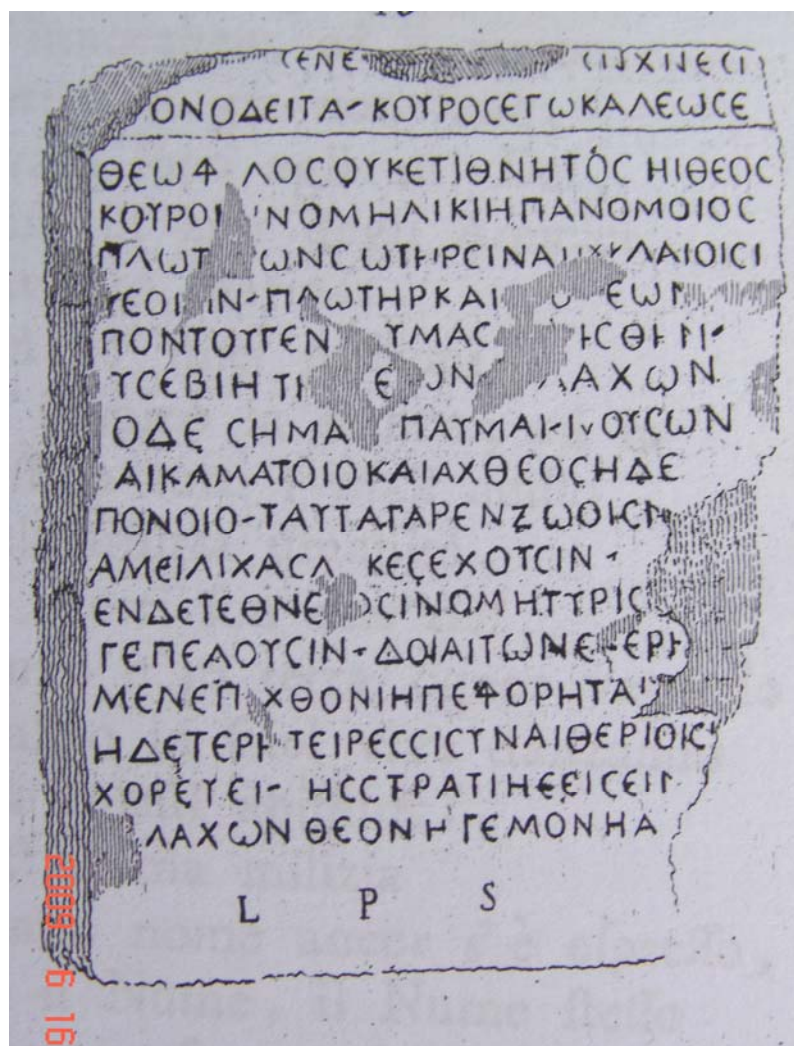 ΟΝΟΔΕΙΤΑ-ΚΟΥΡΟϹΕΓΩΚΑΛΕΩϹΕ
ΘΕΩΦ ΛΟϹΟΥΚΕΤΙΘΝΗΤΟϹ ΗΙΘΕΟϹ
ΚΟΥΡΟΙ ΝΟΜΗΛΙΚΙΗΠΑΝΟΜΟΙΟϹ
ΠΛΩΤ ΩΝϹΩΤΗΡϹΙΝΑ ΛΑΙΟΙϹΙ
ΥΕΟΙ ΙΝ-ΠΛΩΤΗΡΚΑΙ ΕΩΝ
ΠΟΝΤΟΥΓΕΝ ΥΜΑϹ
ΥϹΕΒΙΗ ΤΙ Ε ΩΝ ΛΑΧΩΝ
ΟΔΕ ϹΗΜΑ ΠΑΥΜΑΙ ΟΥϹΩΝ
ΑΙΚΑΜΑΤΟΙΟΚΑΙΑΧΘΕΟϹΗΔΕ
ΠΟΝΟΙΟ-ΤΑΥΤΑΓΑΡΕΝΖΩΟΙϹΙ
ΑΜΕΙΛΙΧΑϹΑ ΚΕϹΕΧΟΥϹΙΝ-
ΕΝΔΕΤΕΘΝΕ ΟϹΙΝΟΜΗΓΥΡΙϹ
ΓΕΠΕΛΟΥϹΙΝ-ΔΟΙΑΙΤΩΝΕ-ΕΡΗ
ΜΕΝΕΠ ΧΘΟΝΙΗΠΕΦΟΡΗΤΑΙ
ΗΔΕΤΕΡΗ ΤΕΙΡΕϹϹΙϹΥΝΑΙΘΕΡΙΟΙϹ
ΧΟΡΕΥΕΙ- ΗϹϹΤΡΑΤΙΗΕΕΙϹΕΙΜ
ΛΑΧΩΝ ΘΕΟΝΗΓΕΜΟΝΗΑ
L P S
2009 6 16